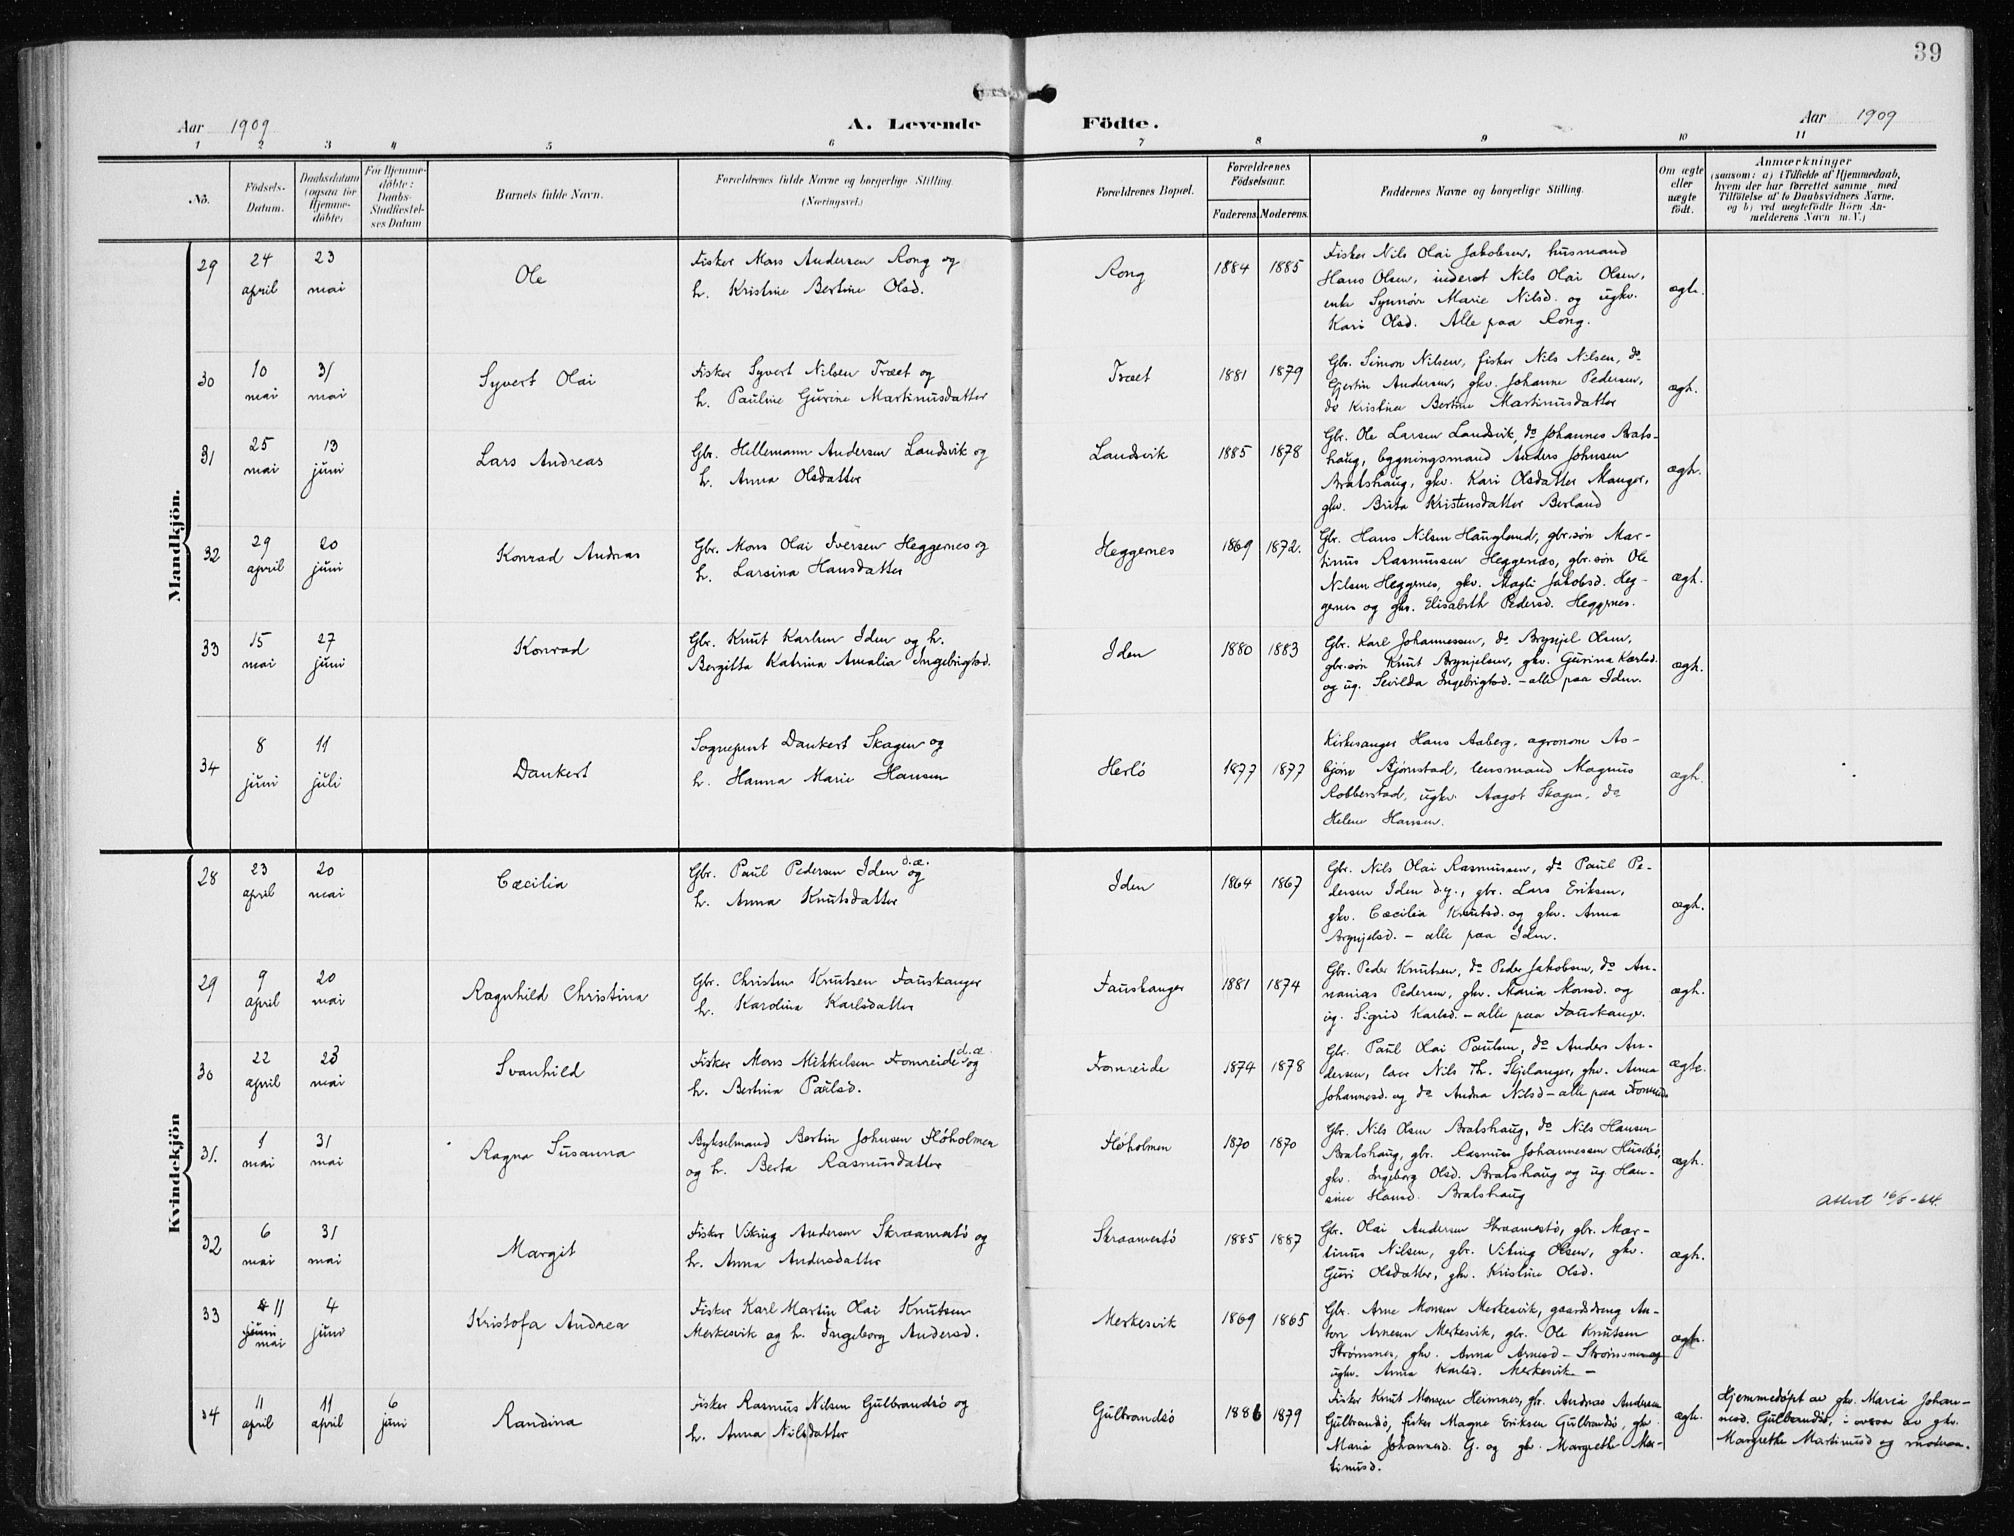 39
Aar 1909
A. Levende Födte.
Aar 1909
1 2 3 4 5 6 7 8 9 10 11
No.
Födsels-
Datum.
Daabsdatum
(ogsaa for
Hjemme-
döbte)
For Hjemme-
döbte:
Daabs-
Stadfæstel-
ses Datum
Barnets fulde Navn.
Forældrenes fulde Navne og borgerlige Stilling.
(Næringsvei.)
Forældrenes Bopæl.
Forældrenes
Födselsaar.
Faderens. Moderens.
Faddernes Navne og borgerlige Stilling.
Om ægte
eller
uægte
født.
Anmærkninger
(saasom: a) i Tilfælde af Hjemmedaab,
hvem der har forrettet samme, med
Tilföielse af to Daabsvidners Navne,
og b) ved uægtefödte Börn An-
melderens Navn m. V.)
Mandkjön.
29
24 april
23 mai
Ole
Fisker Mons Andersen Rong og
h. Kristine Bertine Olsd.
Rong
1884 1885
Fisker Nils Olai Jakobsen, husmand
Hans Olsen, inderst Nils Olai Olsen,
enke Synnøv Marie Nilsd. og ugkv.
Kari Olsd. Alle paa Rong.
ægte.
30
10 mai
31 mai
Syvert Olai
Fisker Syvert Nilsen Træet og
h. Pauline Gurine Martinusdatter
Træet
1881 1879
Gbr. Simon Nilsen, fisker Nils Nilsen, do
Gjertin Andersen, gkv. Johanne Pedersen,
do Kristine Bertine Martinusdatter
ægh.
31
25 mai
13 juni
Lars Andreas
Gbr. Hellemann Andersen Landsvik og
h. Anna Olsdatter
Landsvik
1885 1878
Gbr. Ole Larsen Landsvik, do Johannes Brats-
haug, bygningsmand Anders Johnsen
Bratshaug, gkv. Kari Olsdatter Manger,
gkv. Brita Kristensdatter Berland
ægh.
32
29 april
20 juni
Konrad Andreas
Gbr. Mons Olai Iversen Heggernes og
h. Larsina Hansdatter
Heggernes
1869 1872.
Gbr. Hans Nilsen Haugland, gbr.søn Mar-
tinus Rasmussen Heggernæs, gbr.søn Ole
Nilsen Heggernes, gkv. Magli Jakobsd. Heg-
gernes og gkv. Elisabeth Pedersd. Heggernes.
ægh.
33
15 mai
27 juni
Konrad
Gbr. Knut Karlsen Iden og h.
Bergitta Katrina Amalia Ingebrigtsd.
Iden
1880 1883
Gbr. Karl Johannessen, do Brynjel Olsen,
gbr.søn Knut Brynjelsen, gkv. Gurina Karlsd.
og ug. Sevilda Ingebrigtsd. – alle paa Iden.
ægh.
34
8 juni
11 juli
Dankert
Sogneprest Dankert Skagen og
h. Hanna Marie Hansen
Herlö
1877 1877
Kirkesanger Hans Aaberg, agronom As-
bjørn Bjørnstad, lensmand Magnus
Robberstad, ugkv. Aagot Skagen, do
Helene Hansen.
ægh.
Kvindekjön
28
23 april
20 mai
Cæcilia
Gbr. Paul Pedersen Iden d.æ. og
h. Anna Knutsdatter
Iden
1864 1867
Gbr. Nils Olai Rasmussen, do Paul Pe-
dersen Iden d.y., gbr. Lars Eriksen,
gkv. Cæcilia Knutsd. og gkv. Anna
Brynjelsd. – alle paa Iden.
ægh.
29
9 april
20 mai
Ragnhild Christina
Gbr. Christen Knutsen Fauskanger
h. Karolina Karlsdatter
Fauskanger
1881 1874
Gbr. Peder Knutsen, do Peder Jakobsen, do An-
nanias Pedersen, gkv. Maria Monsd. og
ug. Sigrid Karlsd. – alle paa Fauskange.
ægh.
30
22 april
23 mai
Svanhild
Fisker Mons Mikkelsen Fromreide d.æ. og
h. Bertina Paulsd.
Fromreide
1874 1878
Gbr. Paul Olai Paulsen, do Anders An-
dersen, lærer Nils Th. Skjelanger, gkv. Anna
Johannesd. og do Andrea Nilsd – alle paa Fromreide
ægte.
31.
1 mai
31 mai
Ragna Susanna
Bykselmand Bertin Johnsen Flöholmen
og h. Berta Rasmusdatter
Flöholmen
1870 1870
Gbr. Nils Olsen Bratshaug, do Nils Hansen
Bratshaug, gbr. Rasmus Johannessen Husebø,
gkv. Ingeborg Olsd. Bratshaug og ug. Han-
sine Hansd. Bratshaug
ægh.
Attest 16/8-64.
32
6 mai
31 mai
Margit
Fisker Viking Andersen Skraamestö og
h. Anna Andersdatter
Skraamestö
1885 1887
Gbr. Olai Andersen Skraamestö, gbr. Mar-
tinus Nilsen, gbr. Viking Olsen, gkv.
Guri Olsdatter, gkv. Kristine Olsd.
ægh.
33
11 juni mai
4 juni
Kristofa Andrea
Fisker Karl Martin Olai Knutsen
Merkesvik og h. Ingeborg Andersd.
Merkesvik
1869 1865
Gbr. Arne Monsen Merkesvik, gaardsdreng An-
ton Arnesen Merkesvik, gbr. Ole Knutsen
Strømsnes, gkv. Anna Arnesd – Strømsnes og
ugkv. Anna Karlsd. Merkesvik –
ægte.
34
11 april
11 april
6 juni
Randina
Fisker Rasmus Nilsen Gulbrandsö og
h. Anna Nilsdatter
Gulbrandsö
1886 1879
Fisker Knut Monsen Heimnes, gbr. Andreas Andersen
Gulbrandsö, fisker Magne Eriksen Gulbrandsö, gkv.
Maria Johannesd. G. og gkv. Margrethe Mar-
tinusd.
ægh.
Hjemmedöpt av gkv. Maria Johan-
nesd. Gulbrandsö, i overvær av gkv.
Margrethe Martinusd og moderen.